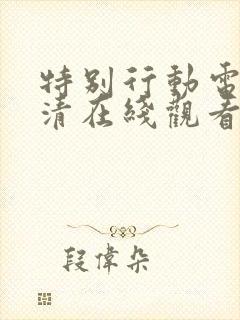 特别行動電
清在綫觀看
段偉朵